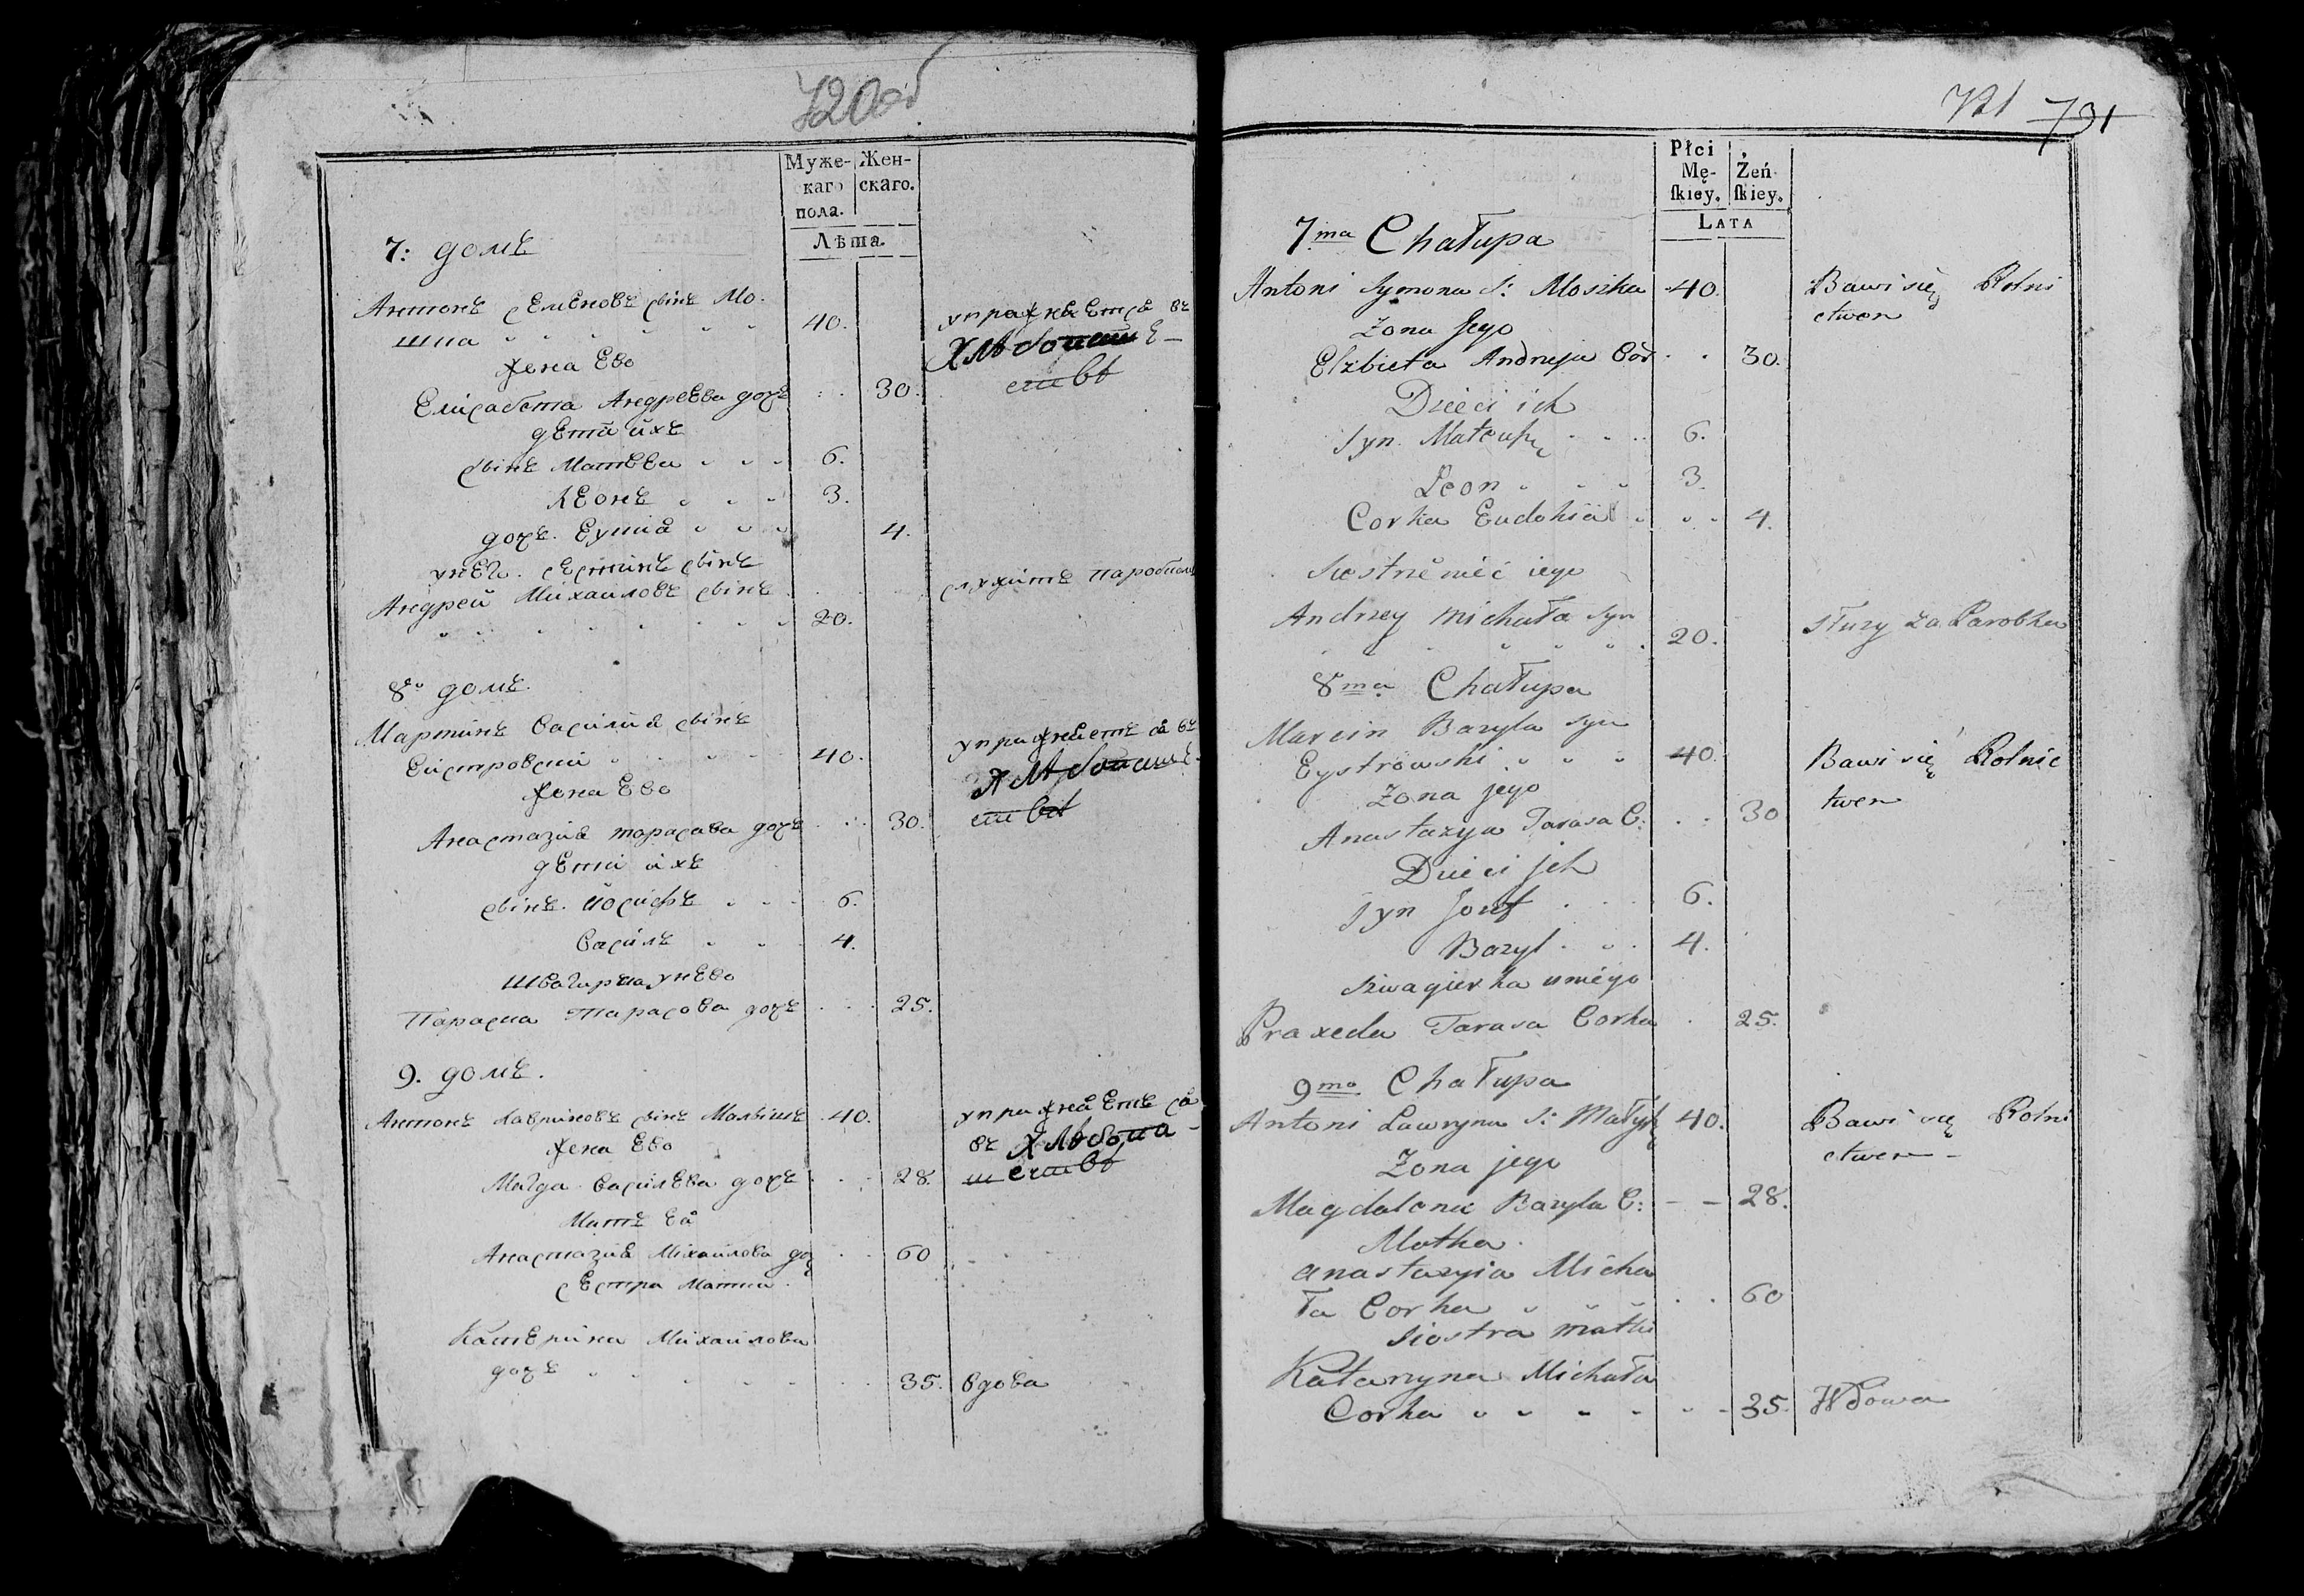 720об
Муже-
каго
пола.
Жен-
скаго.
Лѣта.
7: домъ
Антонъ Семёновъ сынъ Мо-
шка 40.
жена Ево
Елисабета Андреева дочь 30.
дети ихъ
сынъ Матвѣй 6.
Леонъ 3.
дочь
4.
унего сестринъ сынъ
Андрей Михаиловъ сынъ
20.
служитъ паробкомъ
8. домъ.
Мартинъ Василия сынъ
40.
жена Ево
Анастазия тарасова дочь 30.
дети ихъ
сынъ Йосифъ 6.
Василь 4.
швагирка унево
Параска Тарасова дочь 25.
9. домъ.
Антонъ Лавриновъ сынъ Малышъ 40.
жена Ево
Магда Василева дочь 28.
Мать Ея
Анастазия Михаилова доч 60
сестра матки
Катерина Михаилова
дочь 35. вдова
721 731
Płci
Mę-
ſkiey.
Żeń
ſkiey.
LATA
7ma Chałupa
Antoni Symona S: Moszka 40. Bawi się Rolni
ctwem
Zona Jego
Elzbieta Andrzeja Cor 30.
Dzieci ich
Syn Mateusz 6.
Leon 3.
Corka Eudokia 4.
Siostrzeniec iego
Andrzey Michała Syn
20. Słuzy za Parobka
8ma Chałupa
Marcin Bazyla syn
Eystrowski 40. Bawi się Rolnic
twem
Zona jego
Anastazya Tarasa C: 30
Dzieci jch
Syn Jozef 6.
Bazyl 4.
Szwagierka u niego
Praxeda Tarasa Corka 25.
9ma Chałupa
Antoni Lawryna S: Małysz 40. Bawi się Rolni
ctwem
Zona jego
Magdalena Bazyla C: 28.
Matka
Anastazyia Micha
ła Corka 60
Siostra matki
Katarzyna Michała
Corka 35. Wdowa